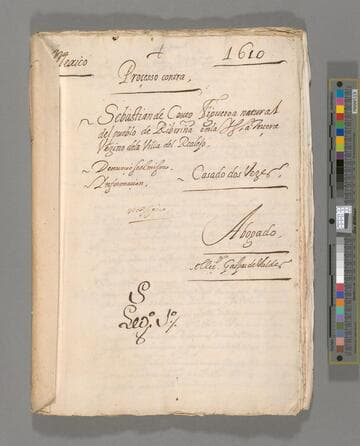 Mexico
1610
Processo contra,
Sebastian de Coueo Figueroa natural
del pueblo de Ribiriña en la
Vezino de la Villa del Realejo.
Denunciose el mismo.
Informacion,
Casado dos Vezes,
Abogado,
el licdo. Gaspar de Valdes
S